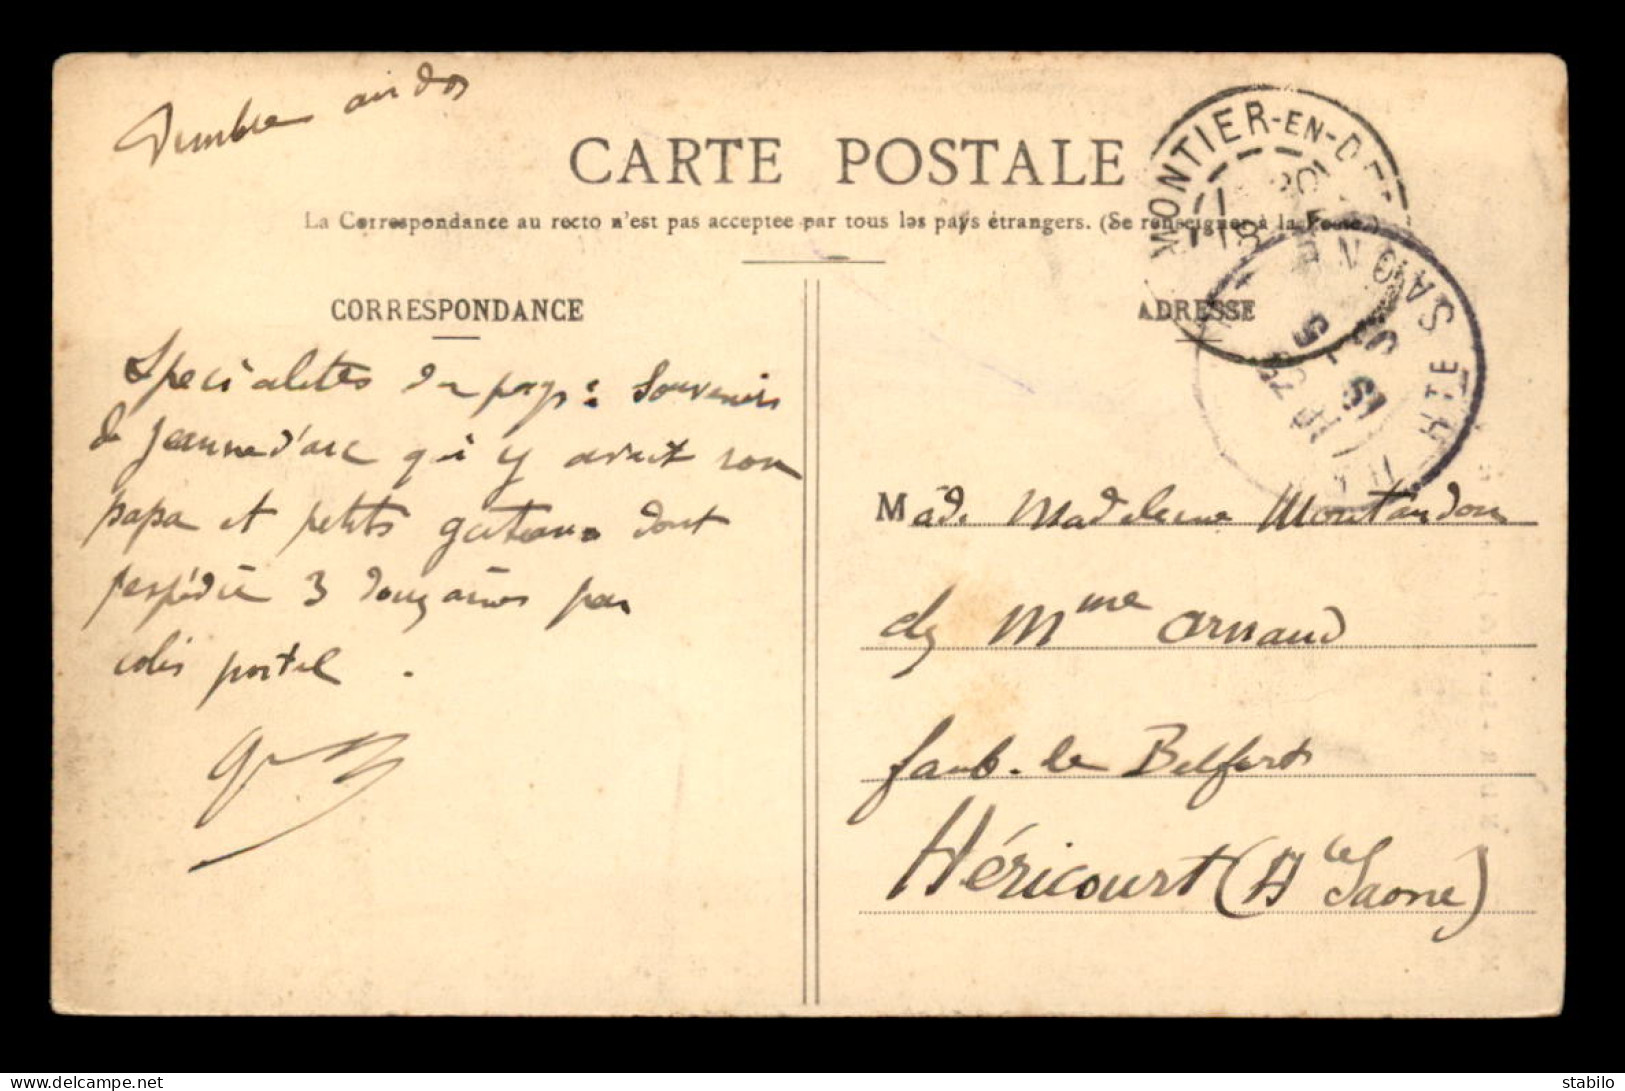 Timbre au dos
CARTE POSTALE
La Correspondance au recto n'est pas acceptee par tous les pays étrangers. (Se renseigner à la Poste)
CORRESPONDANCE
ADRESSE
MONTIER-EN-DER
HTE SAÔNE
Spécialites du pays : Souvenirs
de Jeanne d'arc qui y avait son
papa et petits gateaux dont
j'expédie 3 douzaines par
colis postal .
Made Madeleine Montandon
chez Mme Arnaud
faub. de Belfort
Héricourt (Hte Saone)
delcampe.net
stabilo